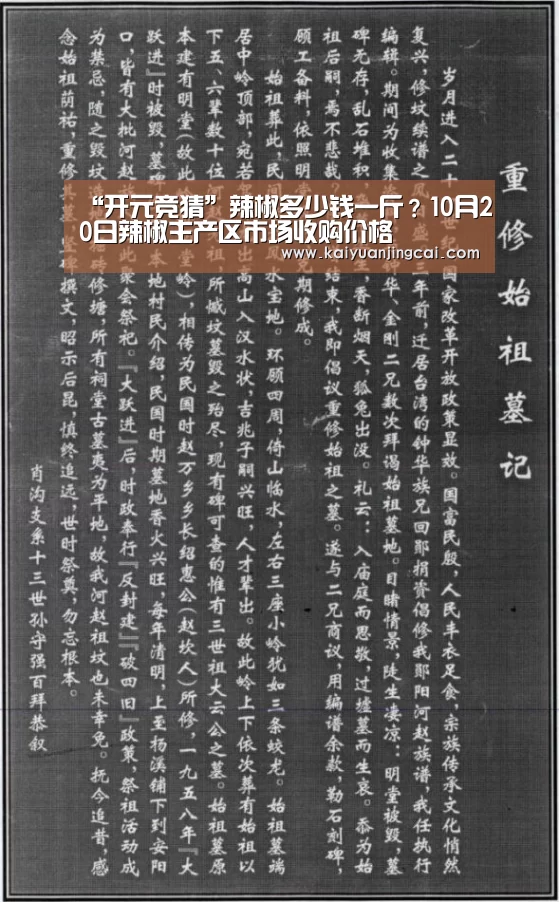 “开元竞猜”辣椒多少钱一斤？10月2
0日辣椒主产区市场收购价格
www.kaiyuanjingcai.com
重修始祖墓记
岁月进入二十世纪，国家改革开放政策显效。国富民殷，人民丰衣足食，宗族传承文化悄然
复兴，修坟续谱之风盛。三年前，迁居台湾的钟华族兄回郧捐资倡修我郧阳河赵族谱，我任执行
编辑。期间为收集钟华、金刚二兄数次拜谒始祖墓地。目睹情景，陡生凄凉：明堂被毁，墓
碑无存，乱石堆积，生，香断烟灭，狐兔出没。礼云：入庙庭而思敬，过墟墓而生哀。忝为始
祖后嗣，焉不悲哉？结束，我即倡议重修始祖之墓。遂与二兄商议，用编谱余款，勒石刻碑，
顾工备料，依照明堂克期修成。
始祖葬此，民间风水宝地。环顾四周，倚山临水，左右三座小岭犹如三条蛟龙。始祖墓端
居中岭顶部，宛若出高山入汉水状，吉兆子嗣兴旺，人才辈出。故此岭上下依次葬有始祖以
下五、六辈数十位河赵祖，所憾坟墓毁之殆尽，现有碑可查的惟有三世祖大云公之墓。始祖墓原
本建有明堂（故此岭堂岭），相传为民国时赵万乡乡长绍惠公（赵坎人）所修，一九五八年『大
跃进』时被毁，墓碑本地村民介绍，民国时期墓地香火兴旺，每年清明，上至杨溪铺下到安阳
口，皆有大批河赵族此聚会祭祀。『大跃进』后，时政奉行『反封建』『破四旧』政策，祭祖活动成
为禁忌，随之毁坟砖修塘，所有祠堂古墓夷为平地，故我河赵祖坟也未幸免。抚今追昔，感
念始祖荫祐，重修其碑撰文，昭示后昆，慎终追远，世时祭奠，勿忘根本。
肖沟支系十三世孙守强百拜恭叙